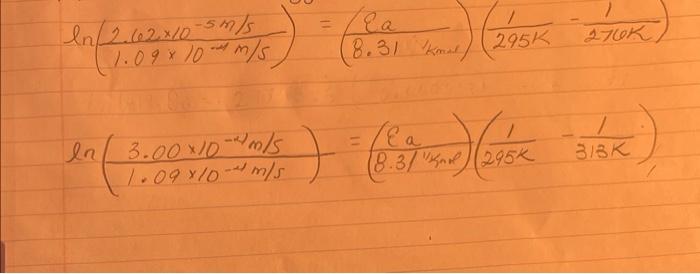 ln(2.62×10⁻⁵ m/s / 1.09×10⁻⁴ m/s) = (Ea / 8.31 J/Kmol)(1/295K - 1/276K)
ln(3.00×10⁻⁴ m/s / 1.09×10⁻⁴ m/s) = (Ea / 8.31 J/Kmol)(1/295K - 1/313K)